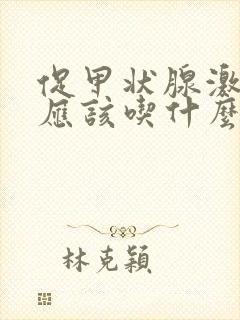 促甲状腺激
應該喫什麼
林克穎